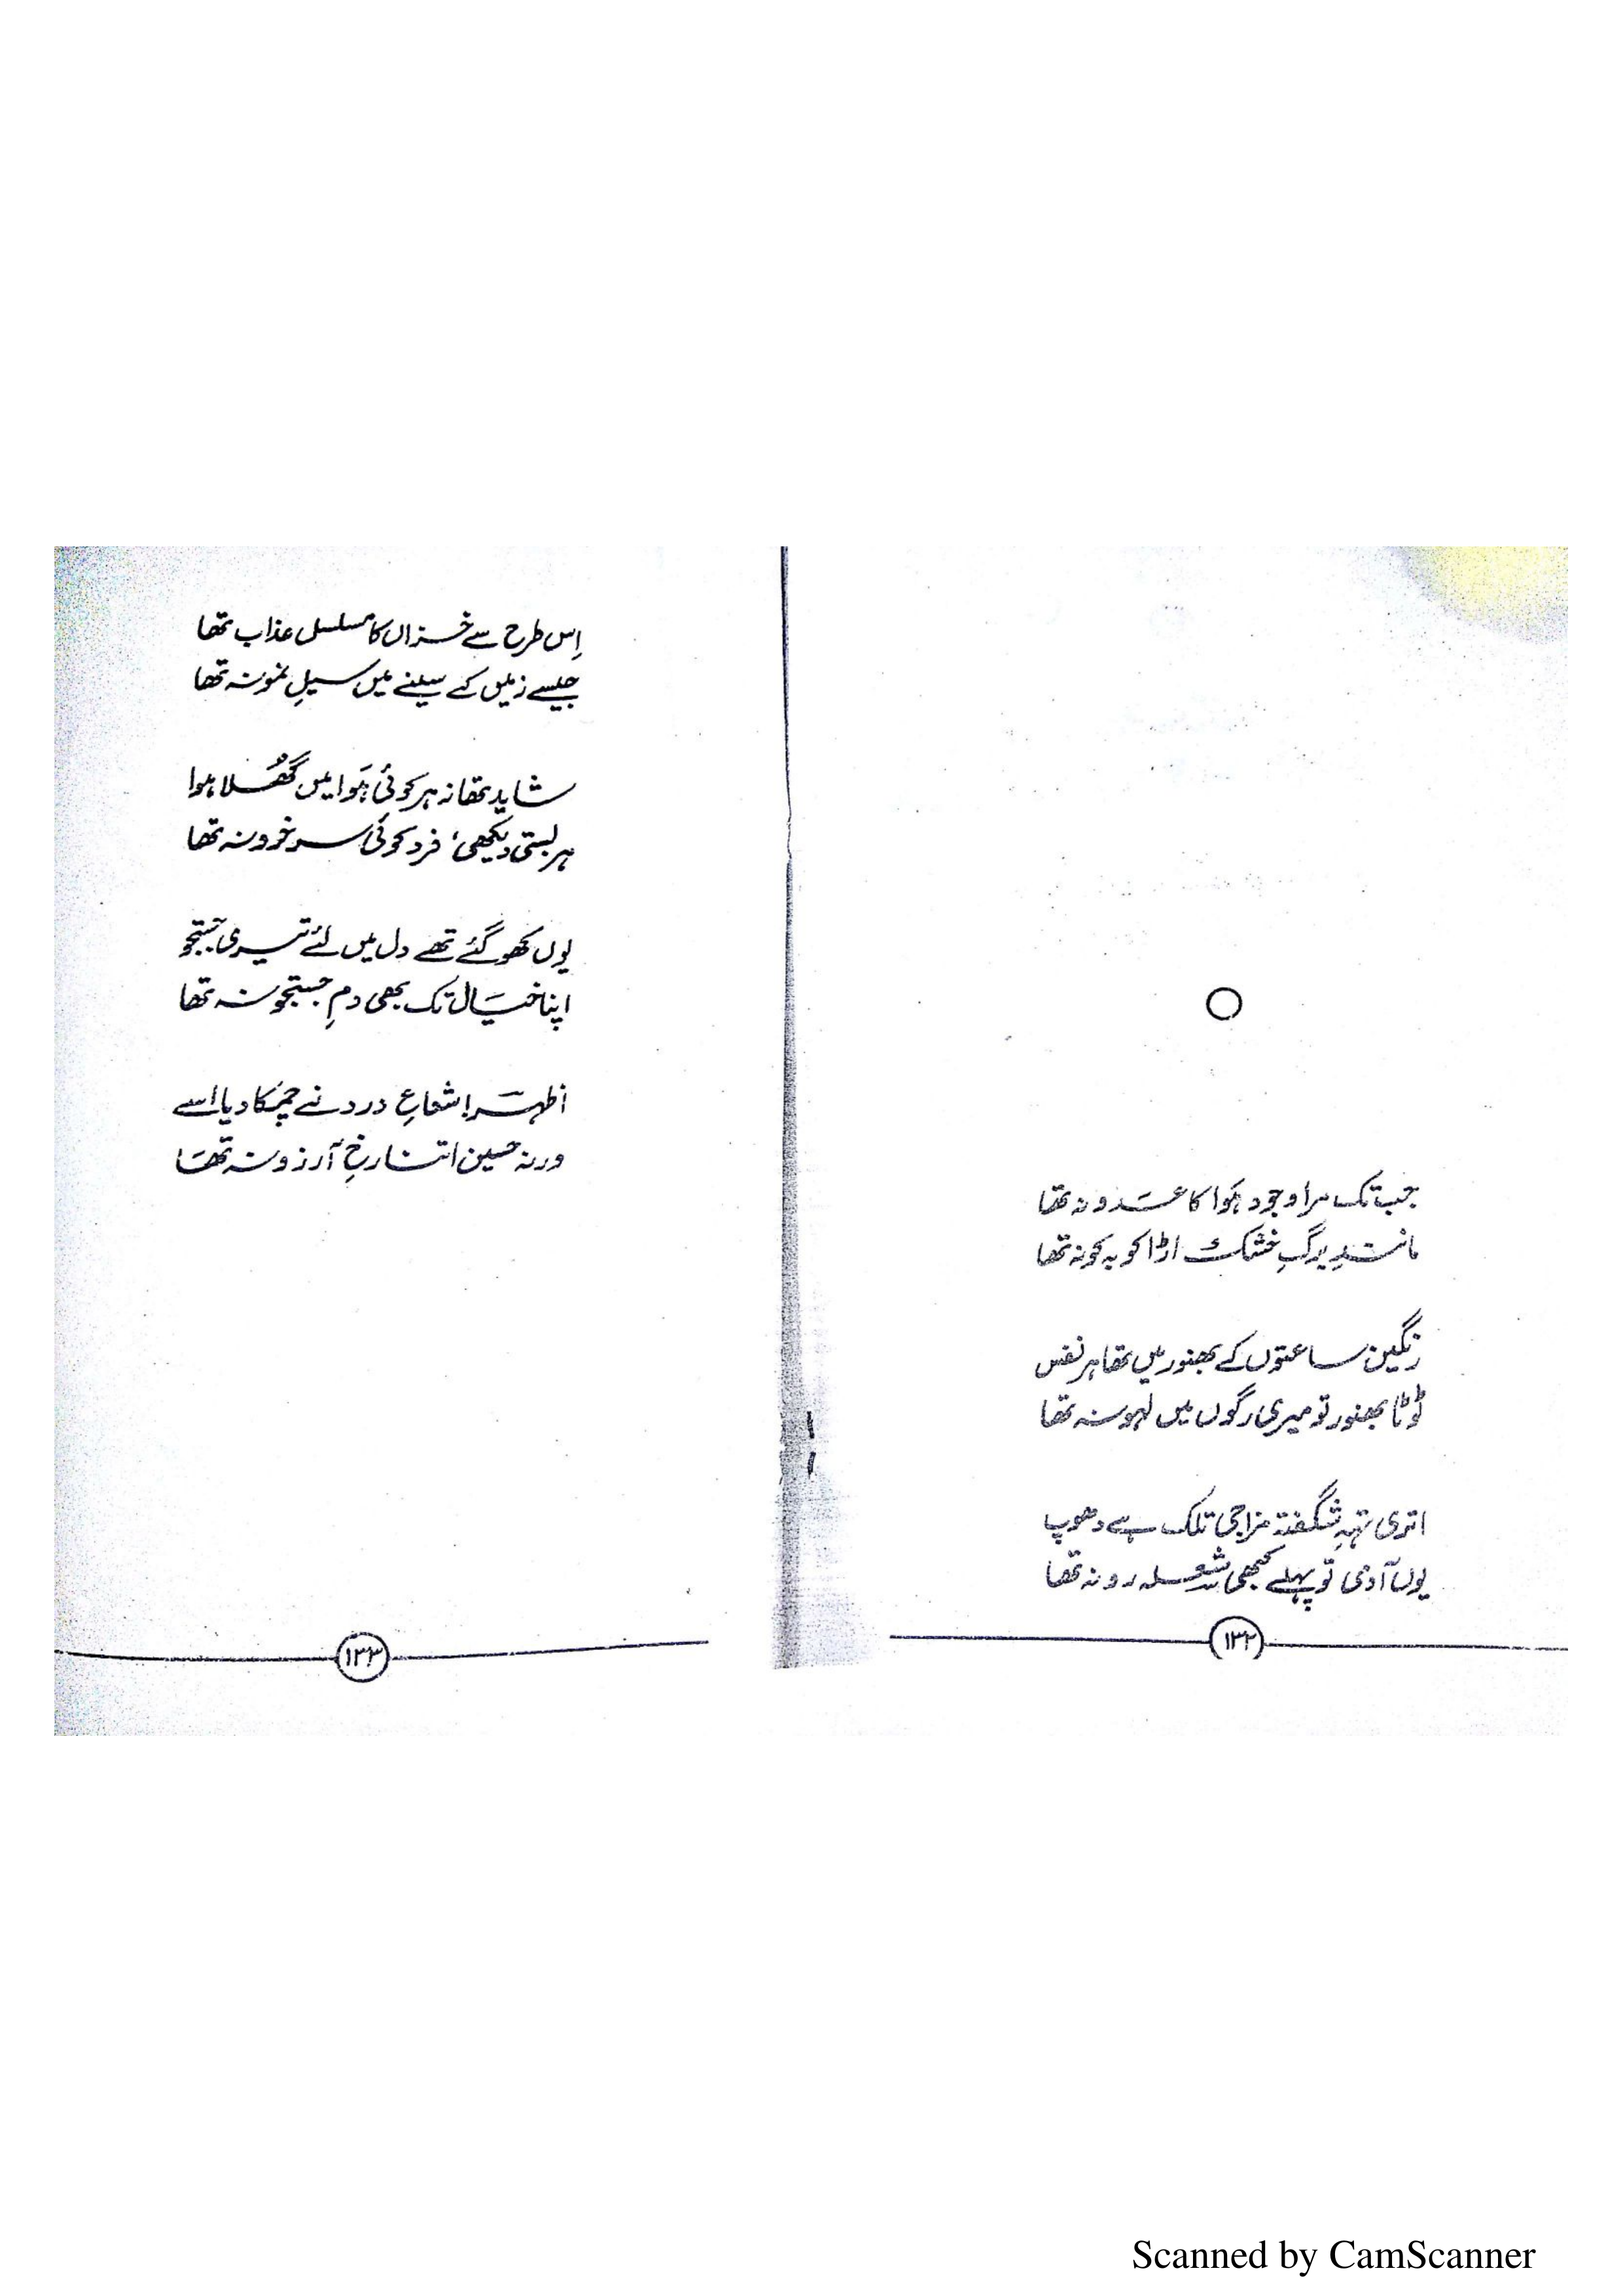 جب تک مرا وجود ہَوا کا عَدو نہ تھا
مانندِ برگِ خشک اڑا کو بہ کو نہ تھا
رنگین ساعتوں کے بھنور میں تھا ہر نفس
ٹوٹا بھنور تو میری رگوں میں لہو نہ تھا
اتری تہہِ شگفتہ مزاجی تلک ہے دھوپ
یوں آدمی تو پہلے کبھی شعلہ رو نہ تھا
۱۳۲
اِس طرح سے خزاں کا مسلسل عذاب تھا
جیسے زمیں کے سینے میں سیلِ نمو نہ تھا
شاید تھا زہر کوئی ہَوا میں گھُلا ہوا
ہر بستی دیکھی، فرد کوئی سرخرو نہ تھا
یوں کھو گئے تھے دل میں لئے تیری جستجو
اپنا خیَال تک بھی دمِ جستجو نہ تھا
اظہَر! شعاعِ درد نے چمکا دیا اسے
ورنہ حسین اتنا رخِ آرزو نہ تھَا
۱۳۳
Scanned by CamScanner